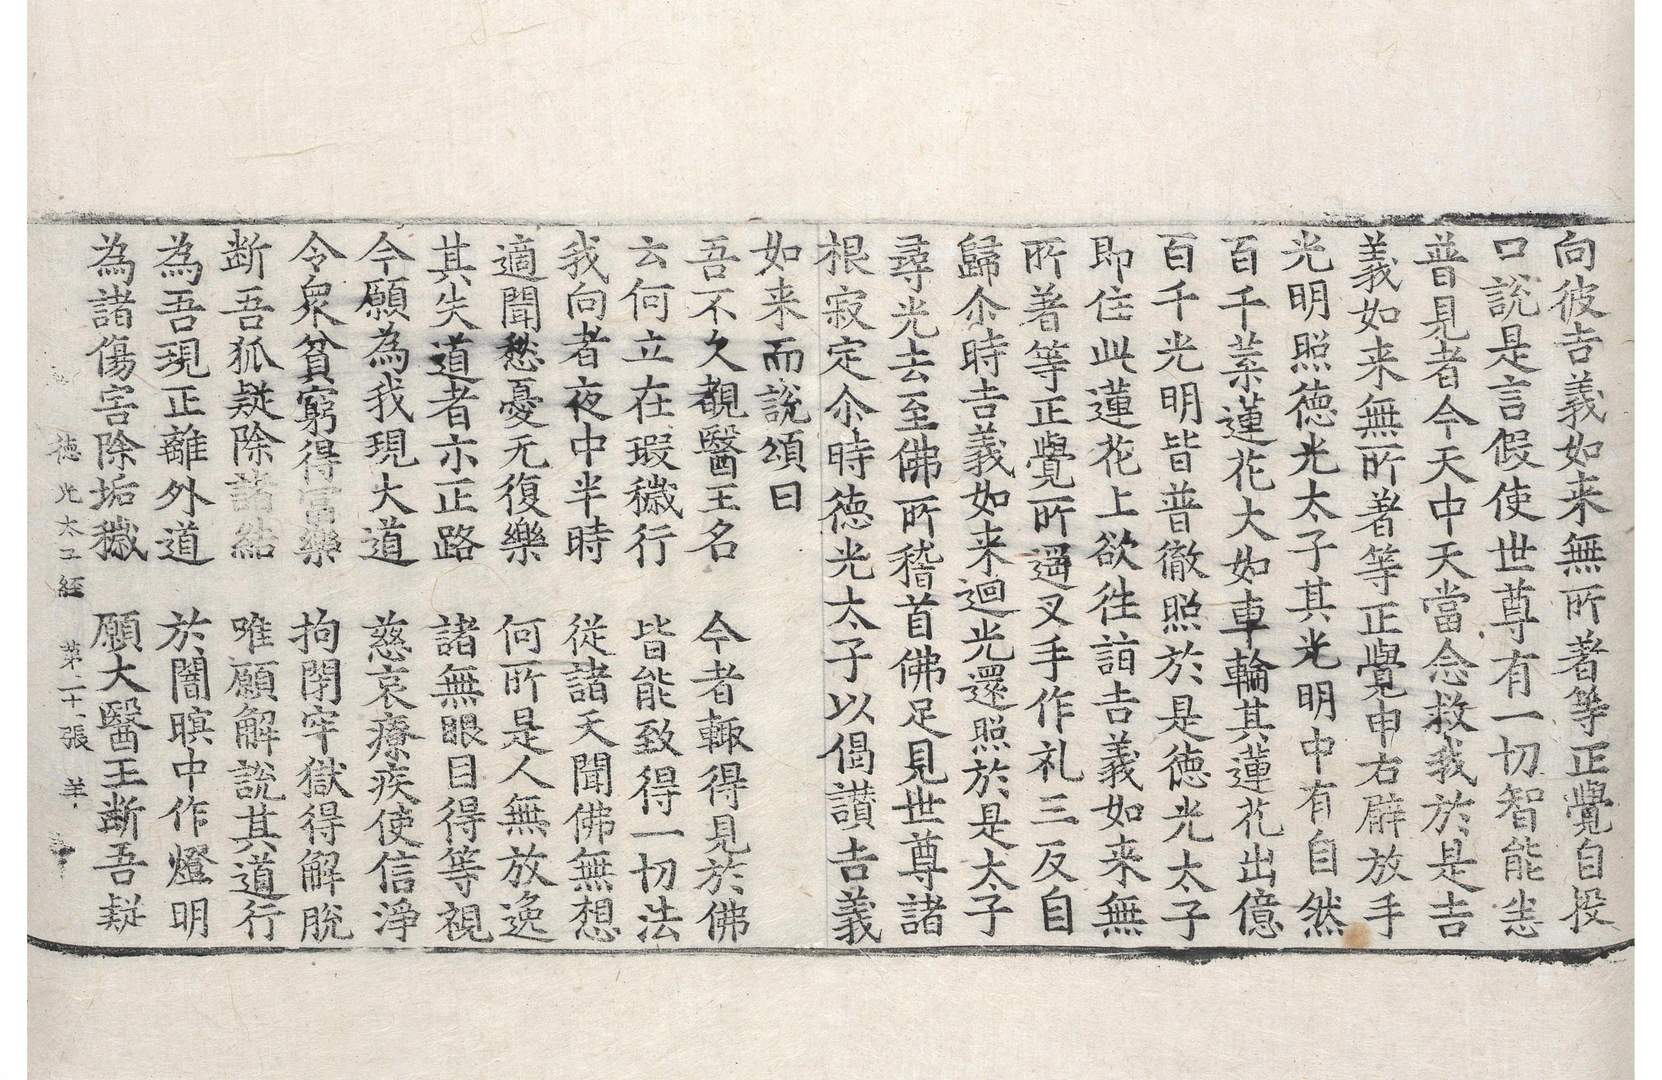 向彼吉義如来無所著等正覺自投
口說是言假使世尊有一切智能悉
普見者今天中天當念救我於是吉
義如来無所著等正覺申右臂放手
光明照德光太子其光明中有自然
百千葉蓮花大如車輪其蓮花出億
百千光明皆普徹照於是德光太子
即住此蓮花上欲往詣吉義如来無
所著等正覺所遥叉手作礼三反自
歸尒時吉義如来迴光還照於是太子
尋光去至佛所稽首佛足見世尊諸
根寂定尒時德光太子以偈讃吉義
如来而說頌曰
吾不久覩醫王名　今者輙得見於佛
云何立在瑕穢行　皆能致得一切法
我向者夜中半時　從諸天聞佛無想
適聞愁憂无復樂　何所是人無放逸
其失道者示正路　諸無眼目得等視
今願為我現大道　慈哀療疾使信淨
令衆貧窮得冨樂　拘閉牢獄得解脫
断吾狐疑除諸結　唯願解說其道行
為吾現正離外道　於闇暝中作燈明
為諸傷害除垢穢　願大醫王断吾疑
德光太子経　第二十張　羊